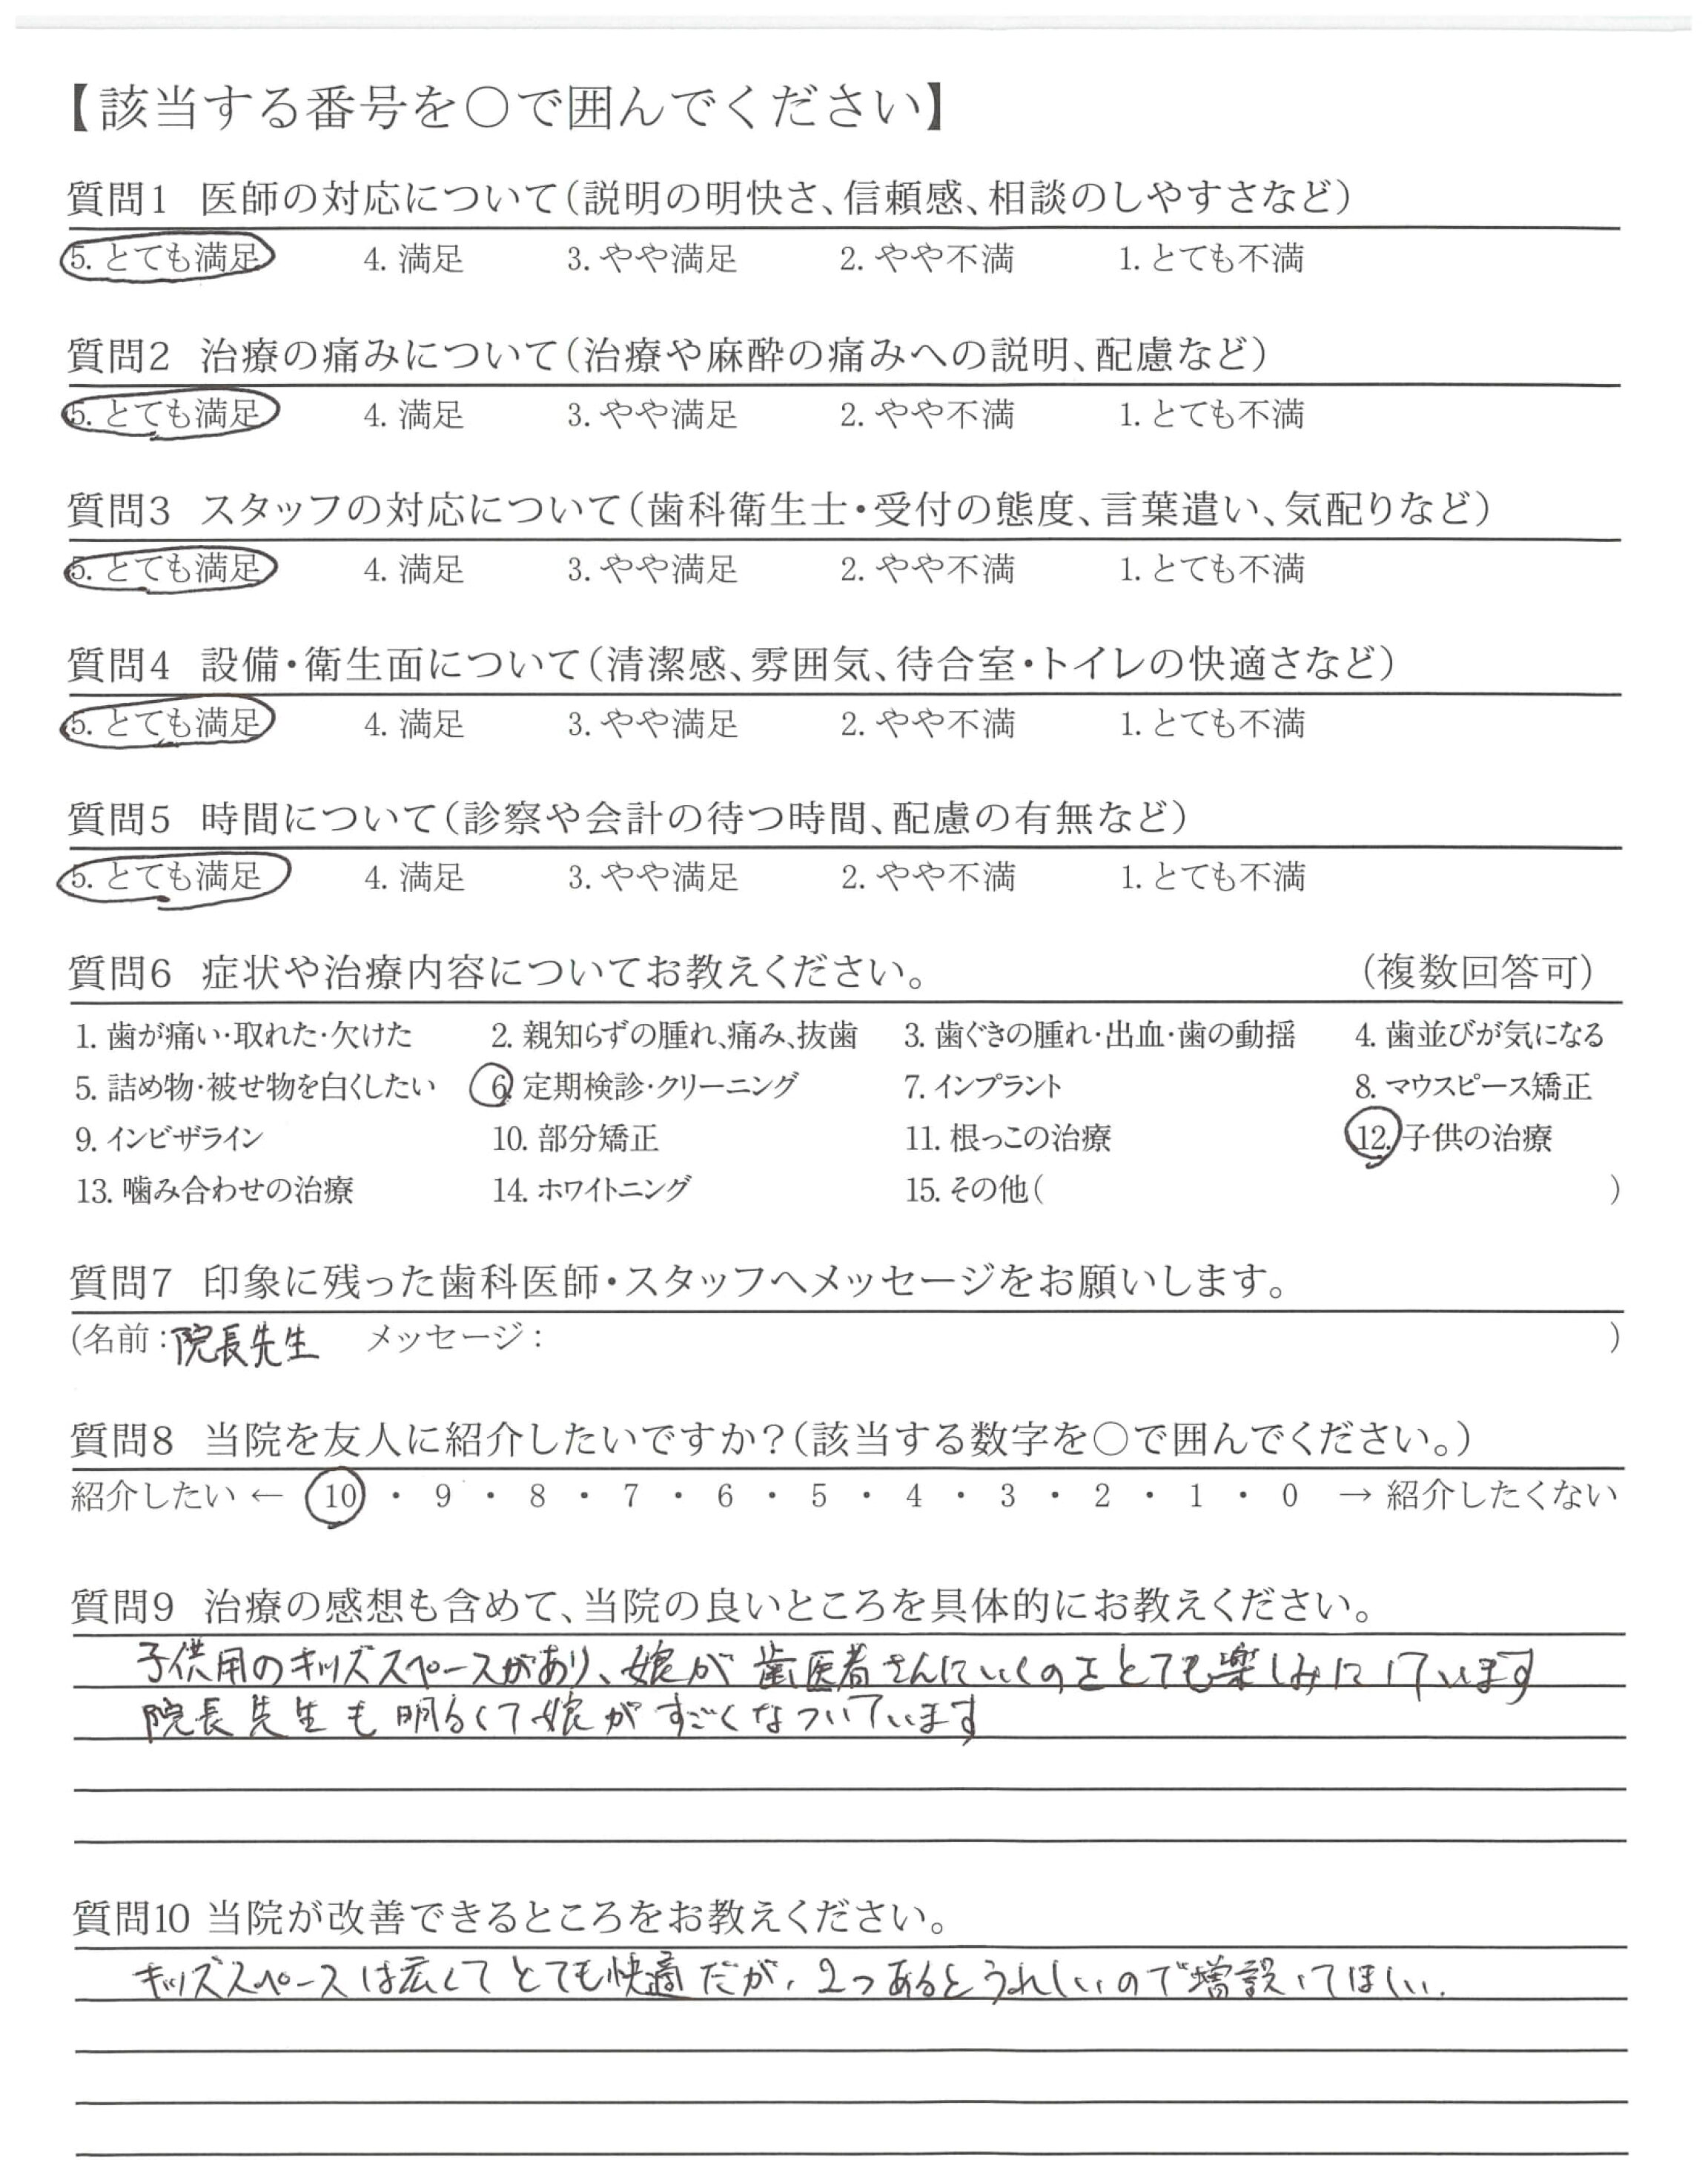 【該当する番号を○で囲んでください】
質問1 医師の対応について(説明の明快さ、信頼感、相談のしやすさなど)
5. とても満足 4. 満足 3. やや満足 2. やや不満 1. とても不満
質問2 治療の痛みについて(治療や麻酔の痛みへの説明、配慮など)
5. とても満足 4. 満足 3. やや満足 2. やや不満 1. とても不満
質問3 スタッフの対応について(歯科衛生士・受付の態度、言葉遣い、気配りなど)
5. とても満足 4. 満足 3. やや満足 2. やや不満 1. とても不満
質問4 設備・衛生面について(清潔感、雰囲気、待合室・トイレの快適さなど)
5. とても満足 4. 満足 3. やや満足 2. やや不満 1. とても不満
質問5 時間について(診察や会計の待つ時間、配慮の有無など)
5. とても満足 4. 満足 3. やや満足 2. やや不満 1. とても不満
質問6 症状や治療内容についてお教えください。 (複数回答可)
1. 歯が痛い・取れた・欠けた 2. 親知らずの腫れ、痛み、抜歯 3. 歯ぐきの腫れ・出血・歯の動揺 4. 歯並びが気になる
5. 詰め物・被せ物を白くしたい 6. 定期検診・クリーニング 7. インプラント 8. マウスピース矯正
9. インビザライン 10. 部分矯正 11. 根っこの治療 12. 子供の治療
13. 噛み合わせの治療 14. ホワイトニング 15. その他( )
質問7 印象に残った歯科医師・スタッフへメッセージをお願いします。
(名前:院長先生 メッセージ: )
質問8 当院を友人に紹介したいですか?(該当する数字を○で囲んでください。)
紹介したい ← 10 ・ 9 ・ 8 ・ 7 ・ 6 ・ 5 ・ 4 ・ 3 ・ 2 ・ 1 ・ 0 → 紹介したくない
質問9 治療の感想も含めて、当院の良いところを具体的にお教えください。
子供用のキッズスペースがあり、娘が歯医者さんにいくのをとても楽しみにしています
院長先生も明るくて娘がすごくなついています
質問10 当院が改善できるところをお教えください。
キッズスペースは広くてとても快適だが、2つあるとうれしいので増設してほしい.